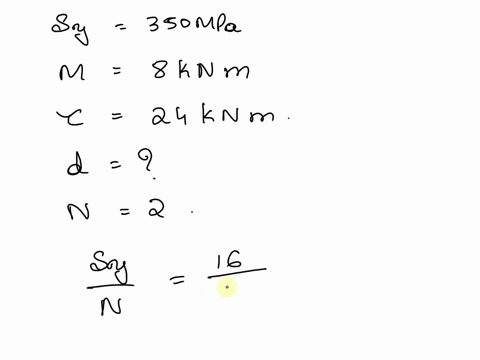 Sy = 350MPa
M = 8kNm
τ = 24kNm.
d = ?
N = 2.
Sy/N = 16/